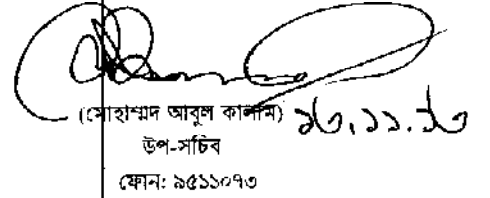 (মোহাম্মদ আবুল কালাম) ১৩.১১.১৩
উপ-সচিব
ফোন: ৯৫১১০৭৩